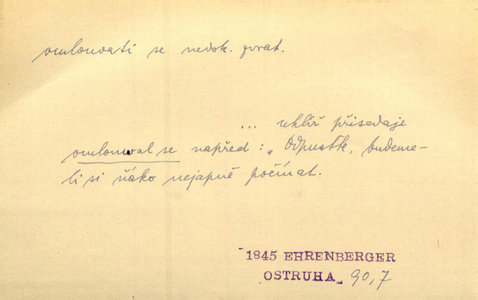 omlouvati se nedok. zvrat.
... uhlíř přisedaje
omlouval se napřed: „Odpusťte, budeme-
li si ňáko nejapně počínat.
1845 EHRENBERGER
OSTRUHA 90,7